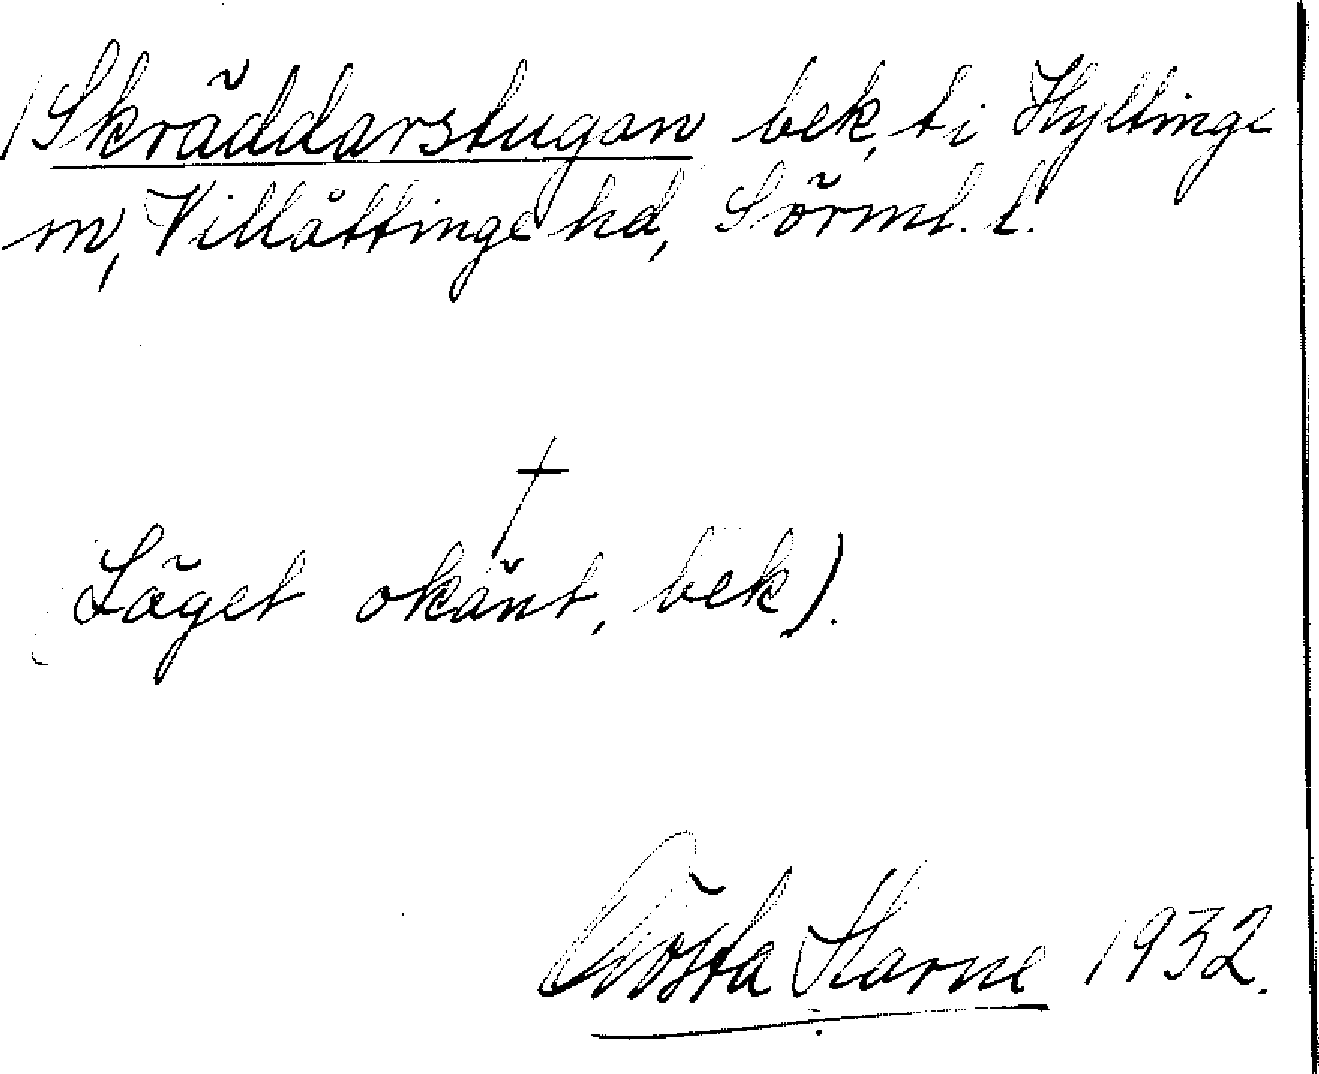 (Skräddarstugan bek, t i Hyltinge
sn, Villåttinge hd, Sörml. l.
†
Läget okänt, bek).
Gösta Harne 1932.